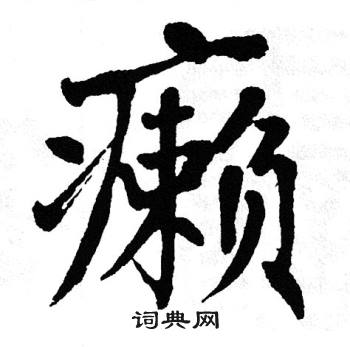 癞
词典网